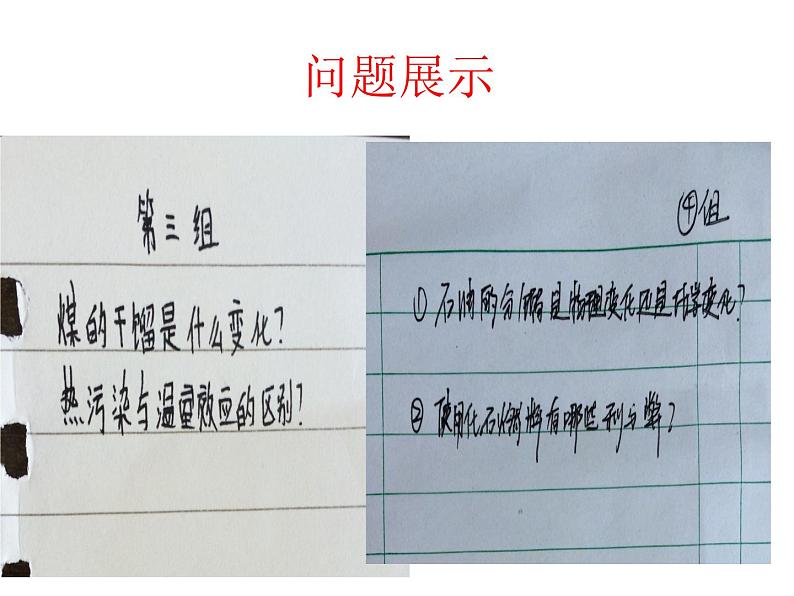 问题展示
第三组
煤的干馏是什么变化?
热污染与温室效应的区别?
④组
① 石油的分馏是物理变化还是化学变化?
② 使用化石燃料有哪些利与弊?